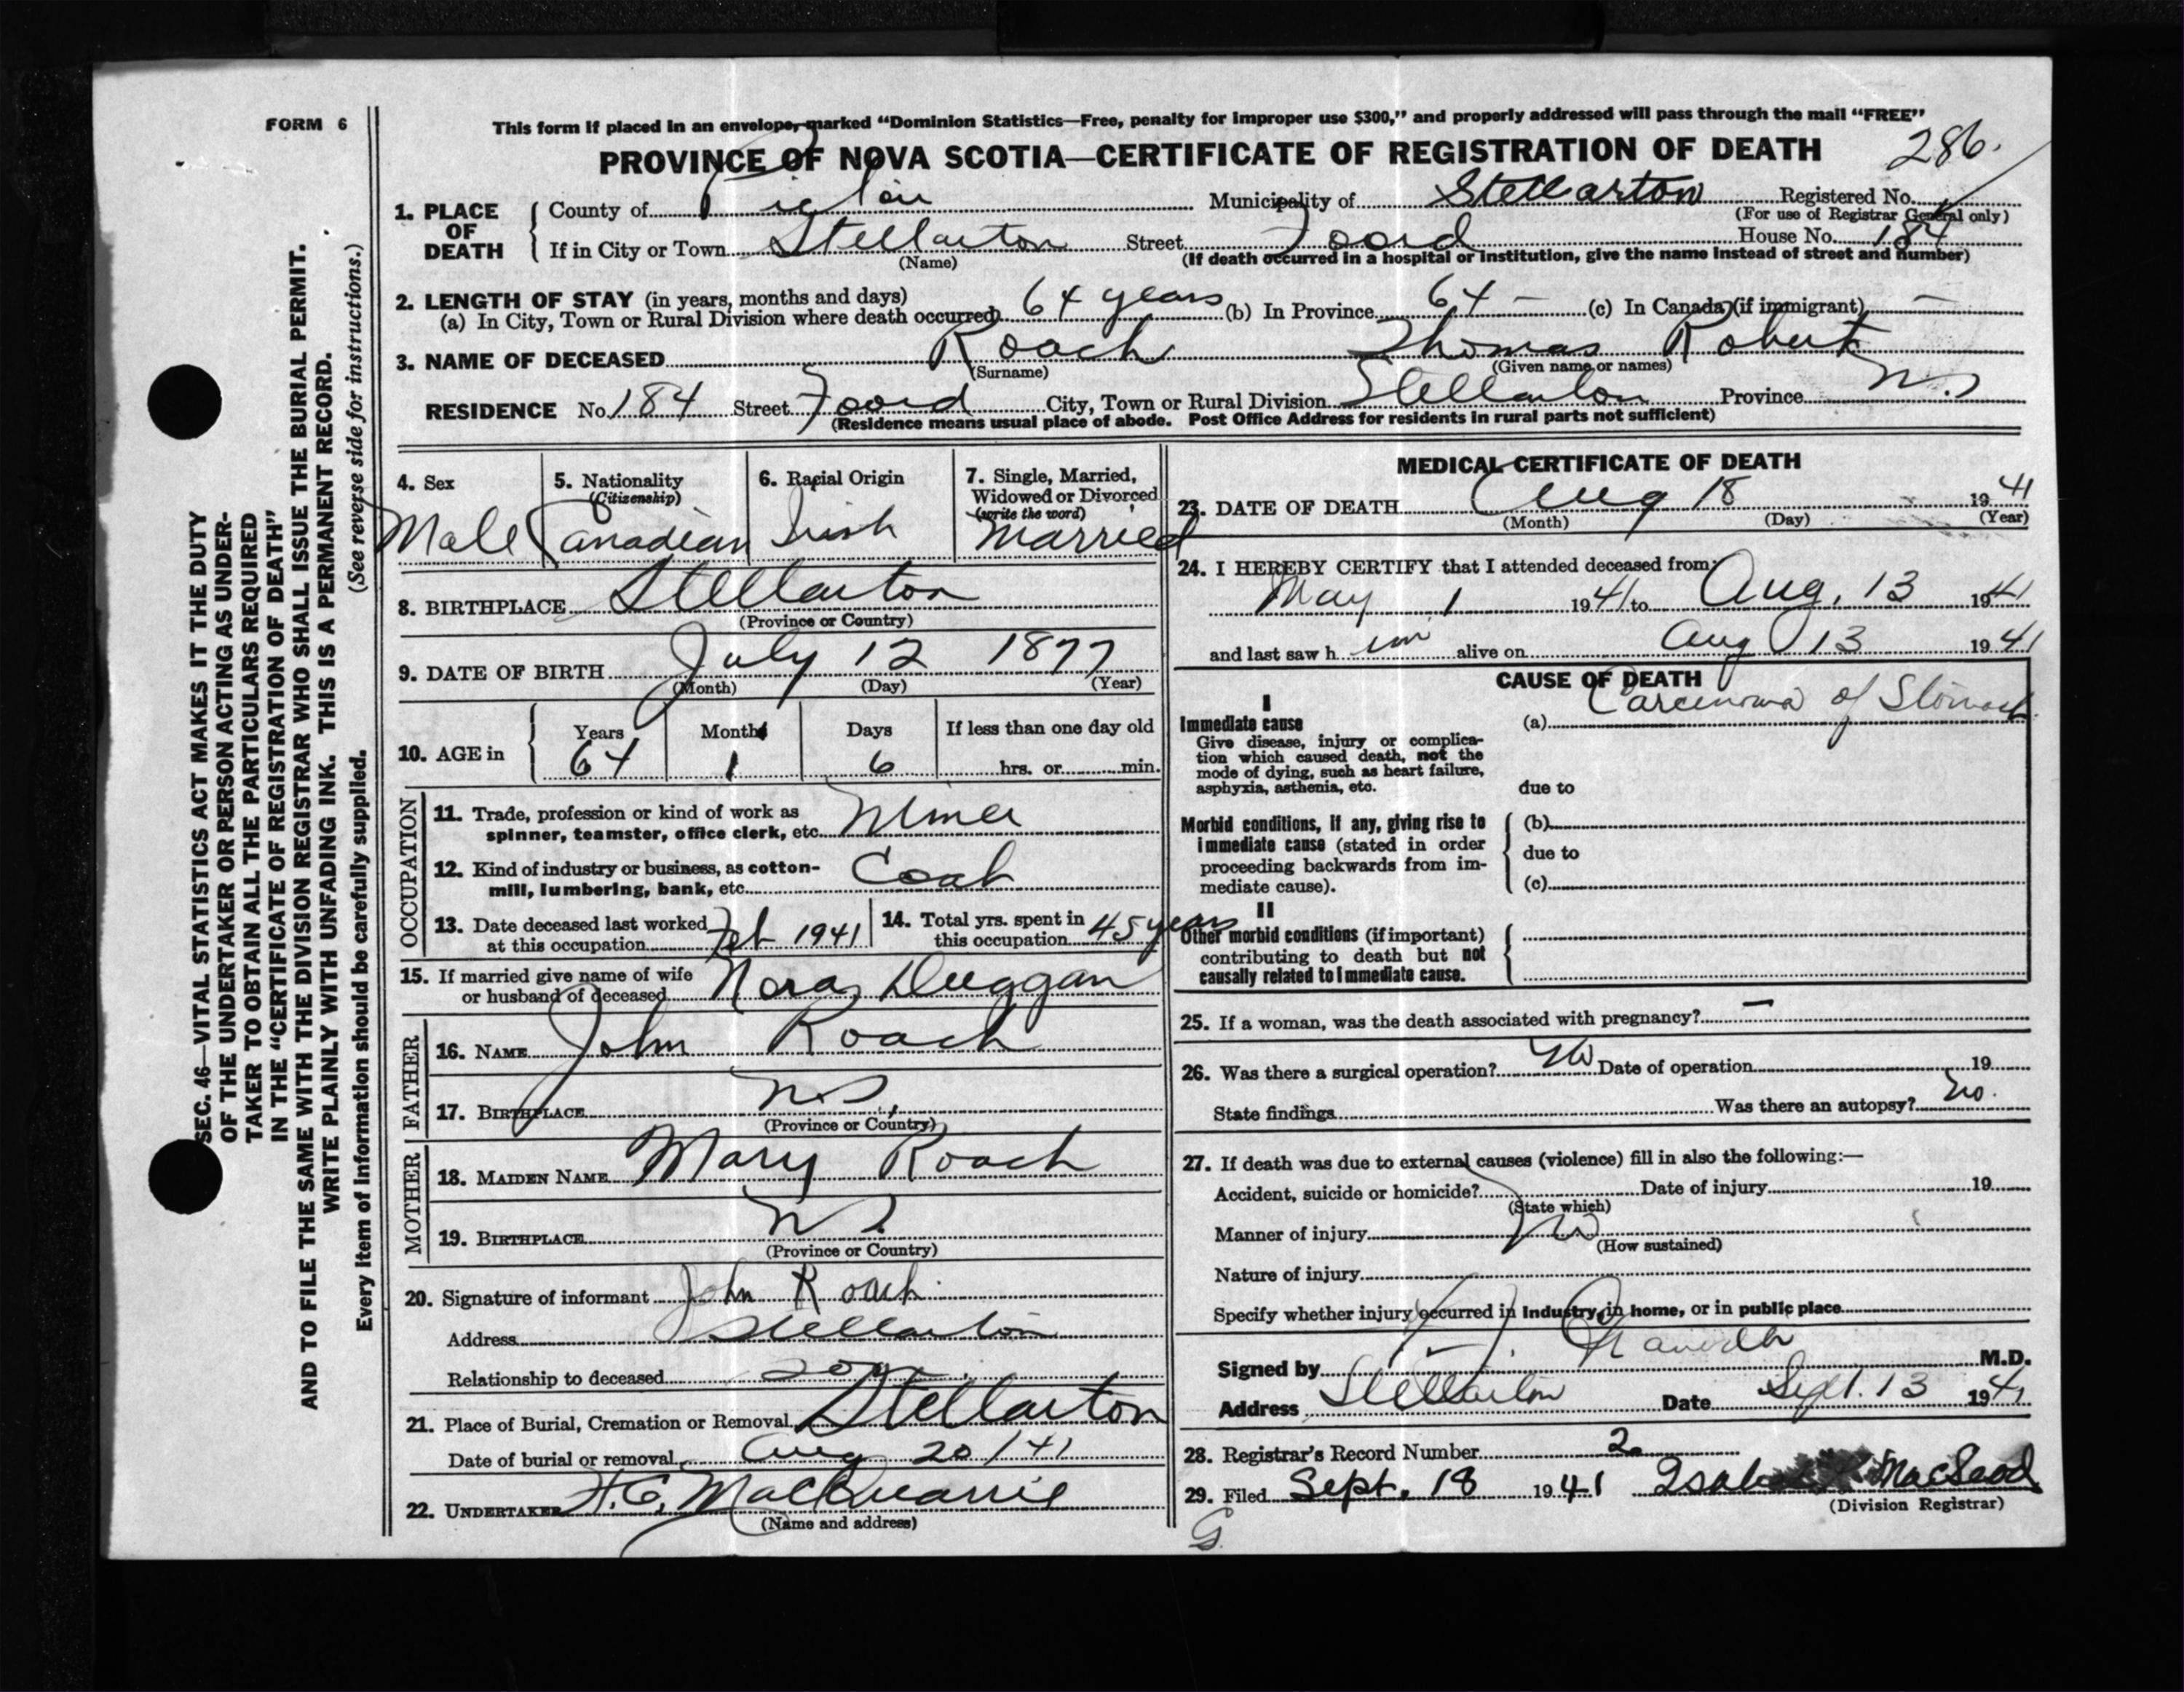 FORM 6
This form if placed in an envelope, marked "Dominion Statistics—Free, penalty for improper use $300," and properly addressed will pass through the mail "FREE"
PROVINCE OF NOVA SCOTIA—CERTIFICATE OF REGISTRATION OF DEATH
286.
1. PLACE OF DEATH
County of Pictou Municipality of Stellarton Registered No.
(For use of Registrar General only)
If in City or Town Stellarton Street Foord House No. 184
(Name) (If death occurred in a hospital or institution, give the name instead of street and number)
2. LENGTH OF STAY (in years, months and days)
(a) In City, Town or Rural Division where death occurred 64 years (b) In Province 64 — (c) In Canada (if immigrant) —
3. NAME OF DECEASED Roach Thomas Robert
(Surname) (Given name or names)
RESIDENCE No. 184 Street Foord City, Town or Rural Division Stellarton Province N.S
(Residence means usual place of abode. Post Office Address for residents in rural parts not sufficient)
4. Sex
Male
5. Nationality
(Citizenship)
Canadian
6. Racial Origin
Irish
7. Single, Married,
Widowed or Divorced
(write the word)
Married
8. BIRTHPLACE Stellarton
(Province or Country)
9. DATE OF BIRTH July 12 1877
(Month) (Day) (Year)
10. AGE in
Years Months Days If less than one day old
64 1 6 hrs. or min.
OCCUPATION
11. Trade, profession or kind of work as
spinner, teamster, office clerk, etc. Miner
12. Kind of industry or business, as cotton-
mill, lumbering, bank, etc. Coal
13. Date deceased last worked
at this occupation Feb 1941
14. Total yrs. spent in
this occupation 45 years
15. If married give name of wife
or husband of deceased Nora Duggan
FATHER
16. NAME John Roach
17. BIRTHPLACE N.S.
(Province or Country)
MOTHER
18. MAIDEN NAME Mary Roach
19. BIRTHPLACE N.S.
(Province or Country)
20. Signature of informant John Roach
Address Stellarton
Relationship to deceased son
21. Place of Burial, Cremation or Removal Stellarton
Date of burial or removal Aug 20/41
22. UNDERTAKER H.C. MacQuarrie
(Name and address)
MEDICAL CERTIFICATE OF DEATH
23. DATE OF DEATH Aug 18 1941
(Month) (Day) (Year)
24. I HEREBY CERTIFY that I attended deceased from:
May 1 1941 to Aug. 13 1941
and last saw h im alive on Aug 13 1941
CAUSE OF DEATH
I
Immediate cause
Give disease, injury or complica-
tion which caused death, not the
mode of dying, such as heart failure,
asphyxia, asthenia, etc.
(a) Carcinoma of Stomach
due to
Morbid conditions, if any, giving rise to
immediate cause (stated in order
proceeding backwards from im-
mediate cause).
(b)
due to
(c)
II
Other morbid conditions (if important)
contributing to death but not
causally related to immediate cause.
25. If a woman, was the death associated with pregnancy? —
26. Was there a surgical operation? No Date of operation 19
State findings Was there an autopsy? No.
27. If death was due to external causes (violence) fill in also the following:—
Accident, suicide or homicide? Date of injury 19
(State which)
Manner of injury No
(How sustained)
Nature of injury
Specify whether injury occurred in industry, in home, or in public place
Signed by M.D.
Address Stellarton Date Sept. 13 1941
28. Registrar's Record Number 2
29. Filed Sept. 18 1941 MacLeod
(Division Registrar)
G
SEC. 46—VITAL STATISTICS ACT MAKES IT THE DUTY
OF THE UNDERTAKER OR PERSON ACTING AS UNDER-
TAKER TO OBTAIN ALL THE PARTICULARS REQUIRED
IN THE "CERTIFICATE OF REGISTRATION OF DEATH"
AND TO FILE THE SAME WITH THE DIVISION REGISTRAR WHO SHALL ISSUE THE BURIAL PERMIT.
WRITE PLAINLY WITH UNFADING INK. THIS IS A PERMANENT RECORD.
Every item of information should be carefully supplied. (See reverse side for instructions.)